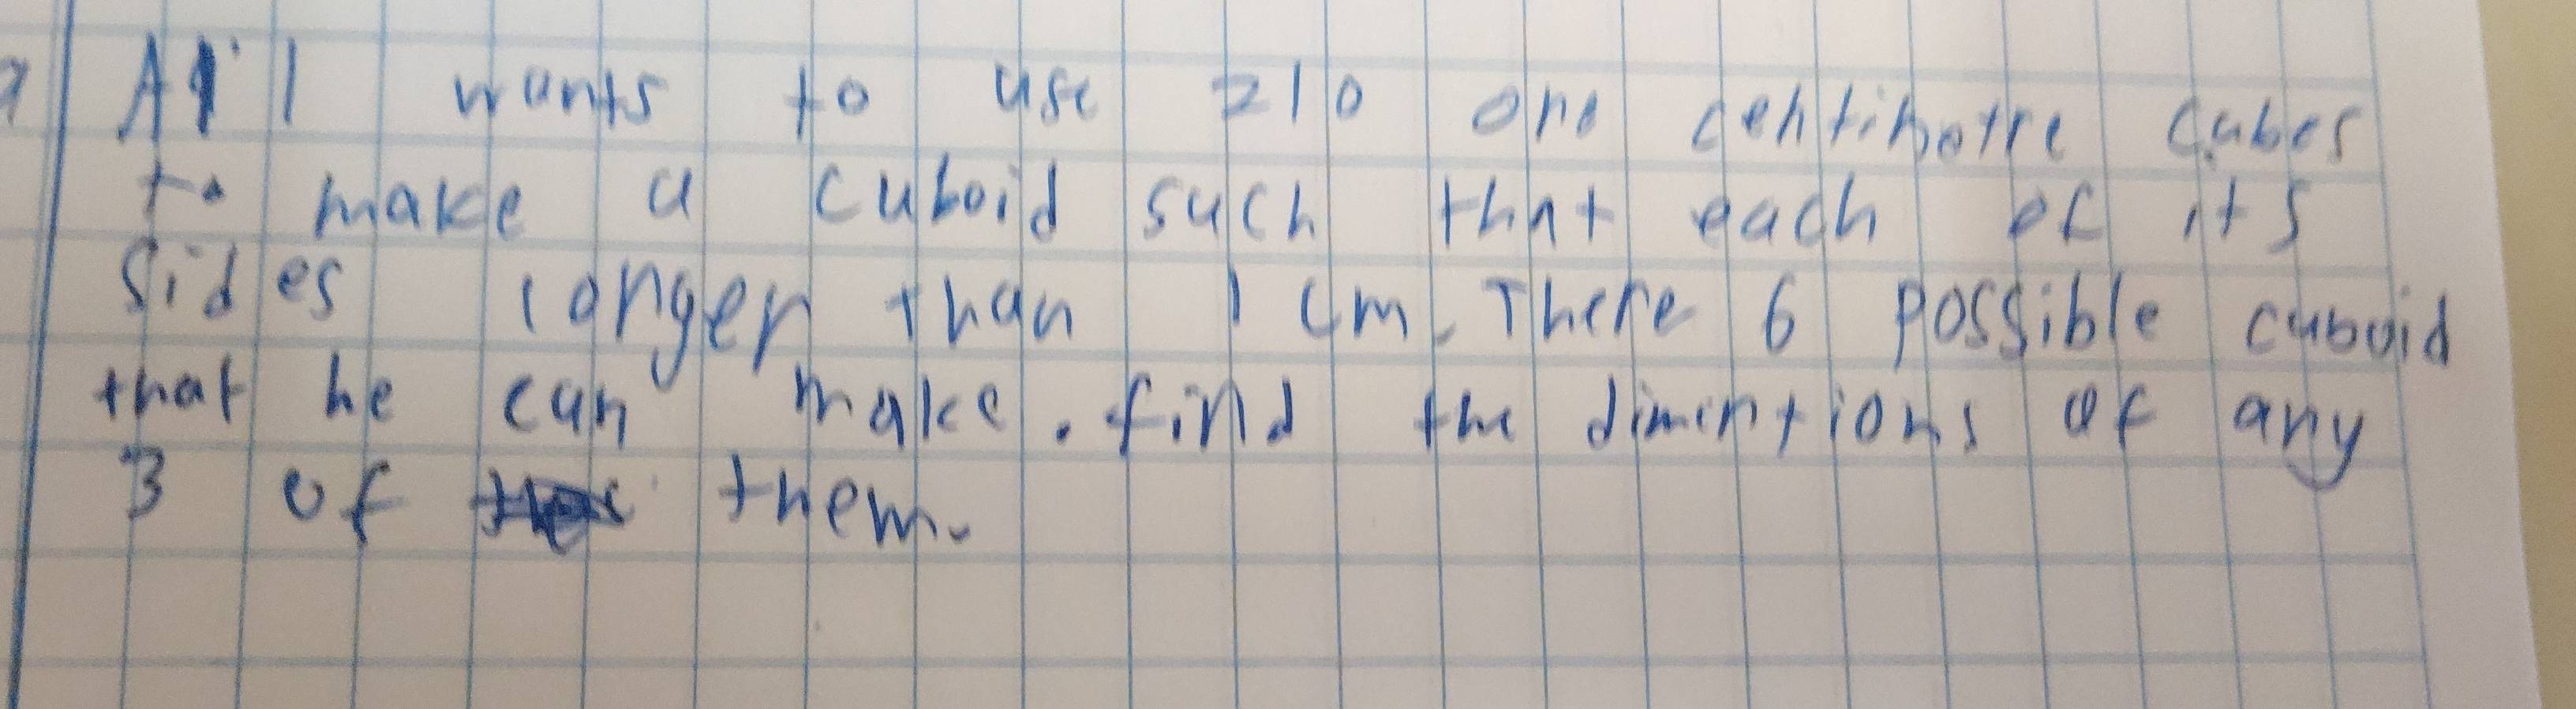 Ali wants to use 210 one centimetre cubes
to make a cuboid such that each of its
sides longer than 1 cm. There 6 possible cuboid
that he can make. find the dimentions of any
3 of them.